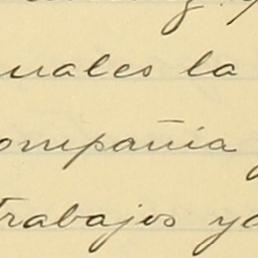 uales la
ompañia
trabajos ya